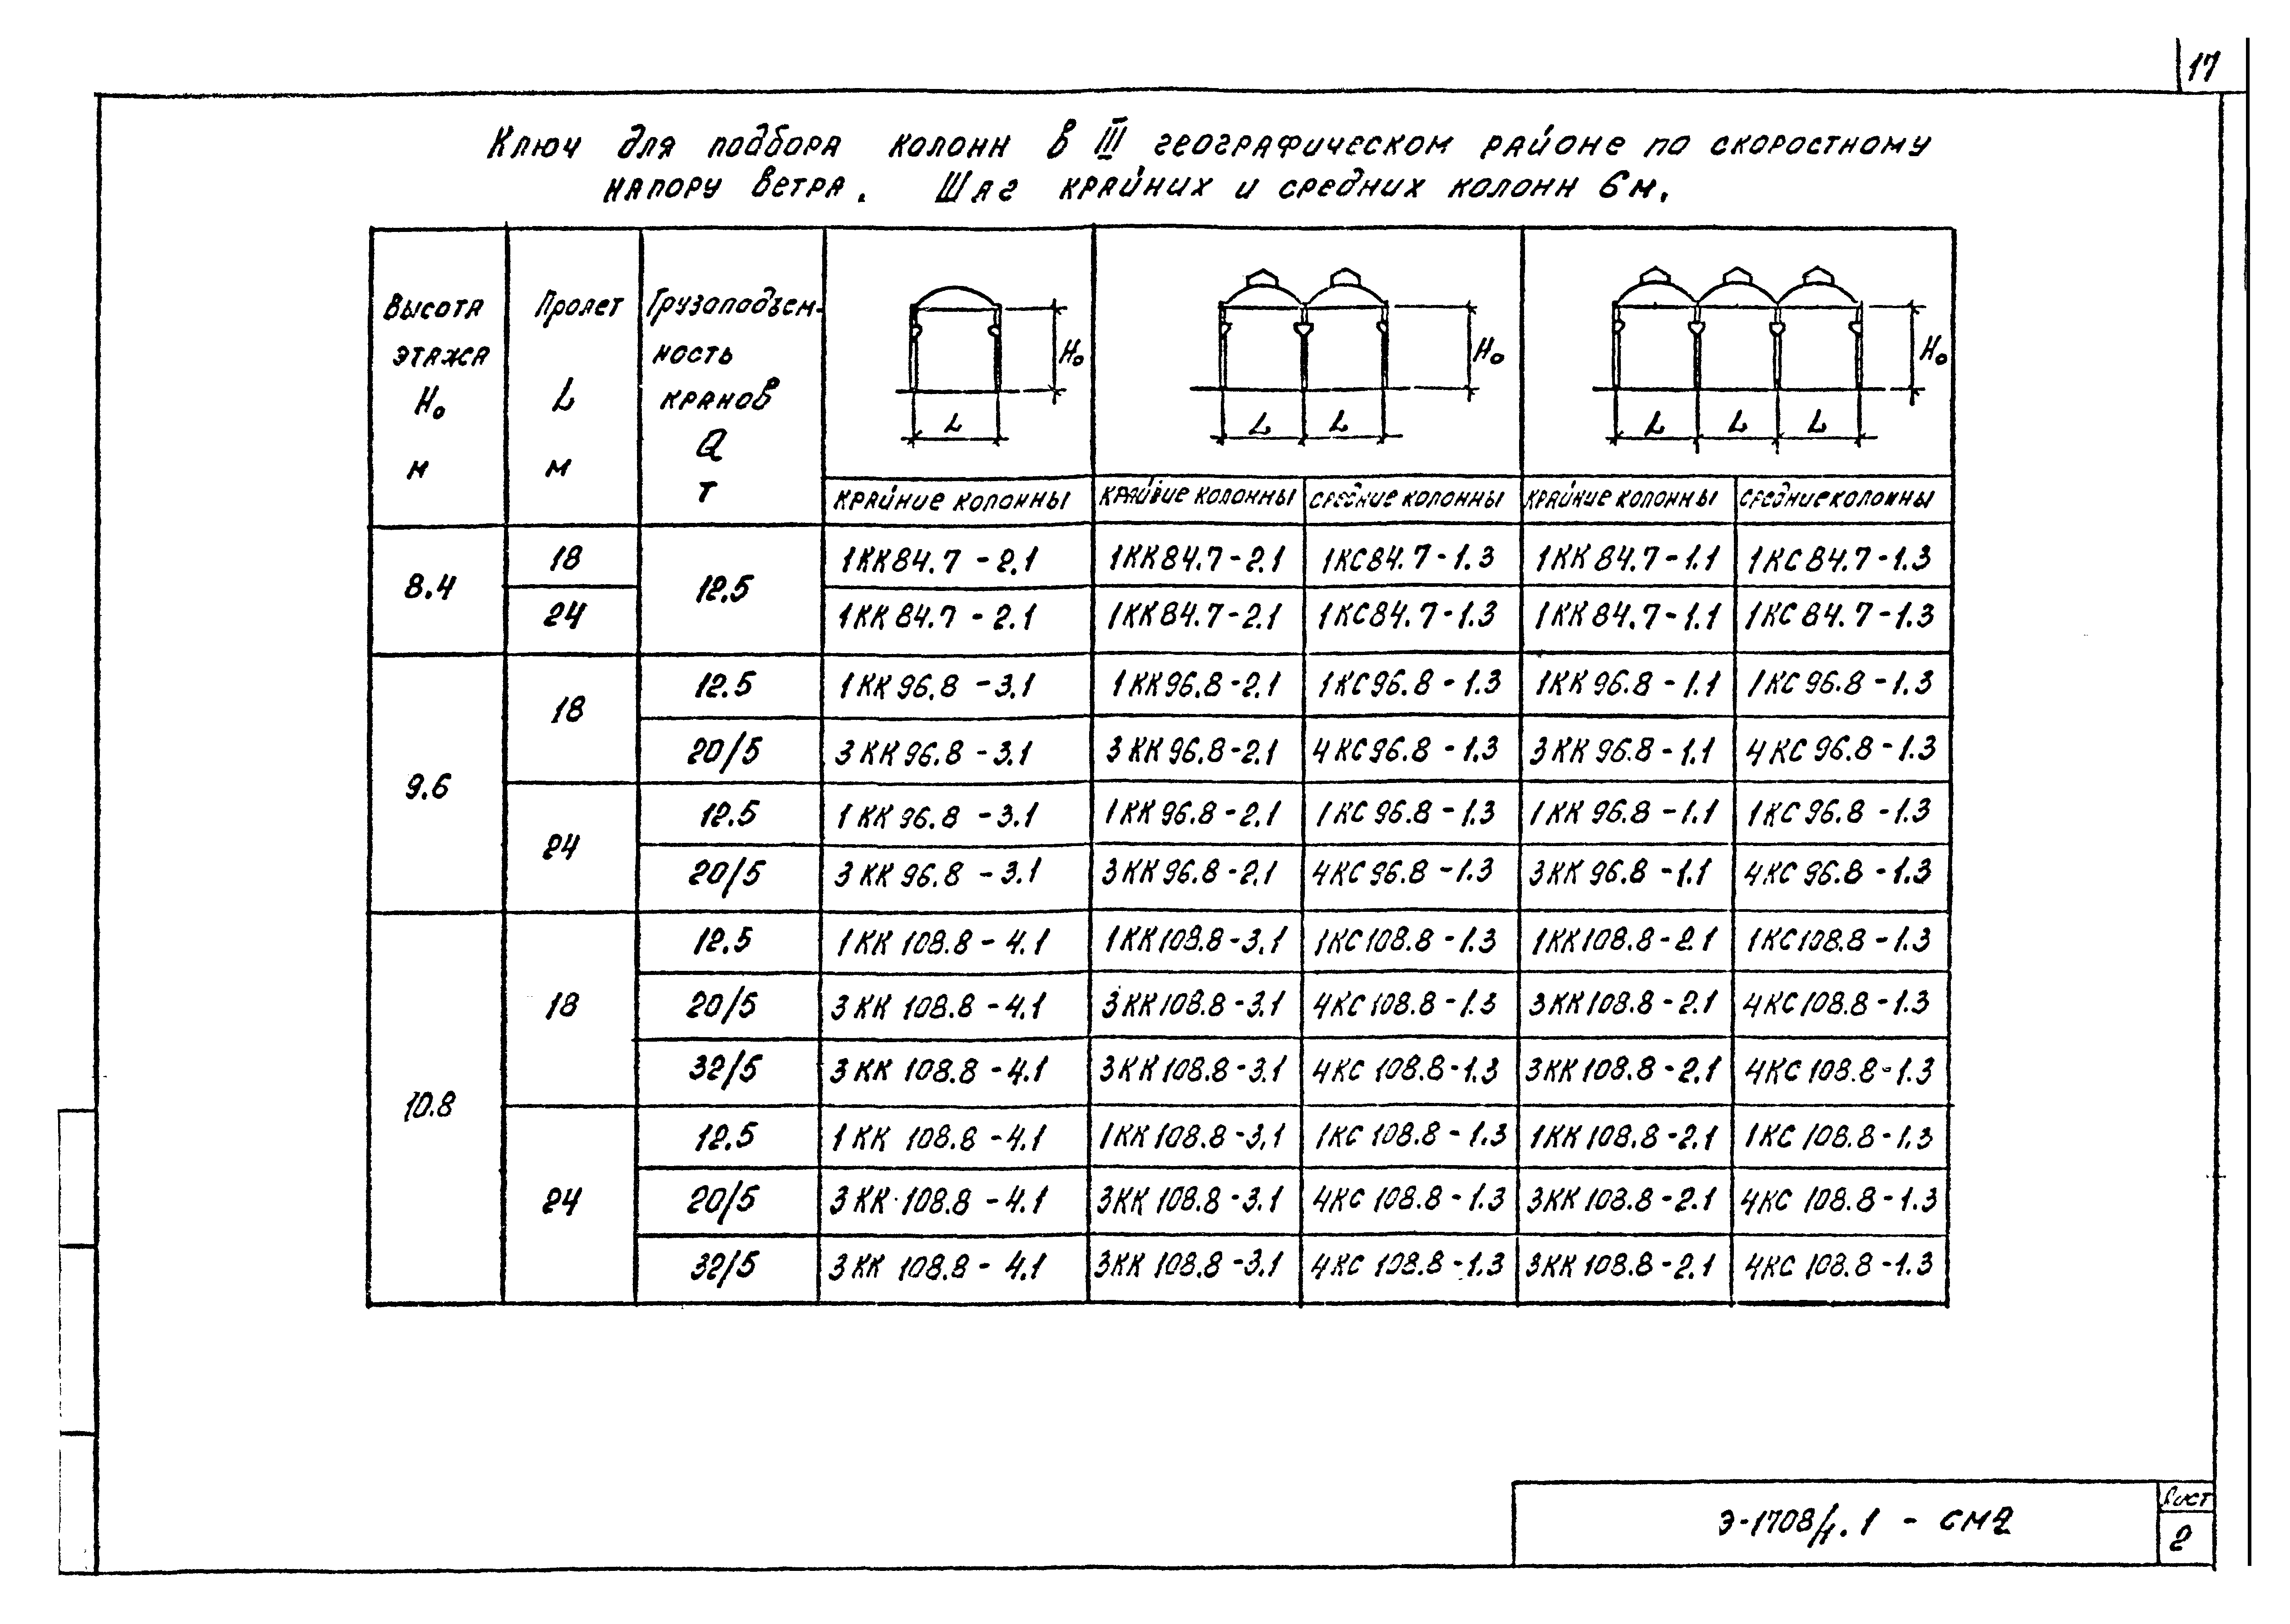 17
Ключ для подбора колонн в III географическом районе по скоростному
напору ветра. Шаг крайних и средних колонн 6м.
Высота этажа H₀ м | Пролет L м | Грузоподъем-ность кранов Q т
H₀ H₀ H₀
L L L L L L
крайние колонны | крайние колонны | средние колонны | крайние колонны | средние колонны
8.4 | 18 | 12.5 | 1КК84.7-2.1 | 1КК84.7-2.1 | 1КС84.7-1.3 | 1КК84.7-1.1 | 1КС84.7-1.3
24 | 1КК84.7-2.1 | 1КК84.7-2.1 | 1КС84.7-1.3 | 1КК84.7-1.1 | 1КС84.7-1.3
9.6 | 18 | 12.5 | 1КК96.8-3.1 | 1КК96.8-2.1 | 1КС96.8-1.3 | 1КК96.8-1.1 | 1КС96.8-1.3
20/5 | 3КК96.8-3.1 | 3КК96.8-2.1 | 4КС96.8-1.3 | 3КК96.8-1.1 | 4КС96.8-1.3
24 | 12.5 | 1КК96.8-3.1 | 1КК96.8-2.1 | 1КС96.8-1.3 | 1КК96.8-1.1 | 1КС96.8-1.3
20/5 | 3КК96.8-3.1 | 3КК96.8-2.1 | 4КС96.8-1.3 | 3КК96.8-1.1 | 4КС96.8-1.3
10.8 | 18 | 12.5 | 1КК108.8-4.1 | 1КК108.8-3.1 | 1КС108.8-1.3 | 1КК108.8-2.1 | 1КС108.8-1.3
20/5 | 3КК108.8-4.1 | 3КК108.8-3.1 | 4КС108.8-1.3 | 3КК108.8-2.1 | 4КС108.8-1.3
32/5 | 3КК108.8-4.1 | 3КК108.8-3.1 | 4КС108.8-1.3 | 3КК108.8-2.1 | 4КС108.8-1.3
24 | 12.5 | 1КК108.8-4.1 | 1КК108.8-3.1 | 1КС108.8-1.3 | 1КК108.8-2.1 | 1КС108.8-1.3
20/5 | 3КК108.8-4.1 | 3КК108.8-3.1 | 4КС108.8-1.3 | 3КК108.8-2.1 | 4КС108.8-1.3
32/5 | 3КК108.8-4.1 | 3КК108.8-3.1 | 4КС108.8-1.3 | 3КК108.8-2.1 | 4КС108.8-1.3
Э-1708/4.1 - СМ2
Лист
2